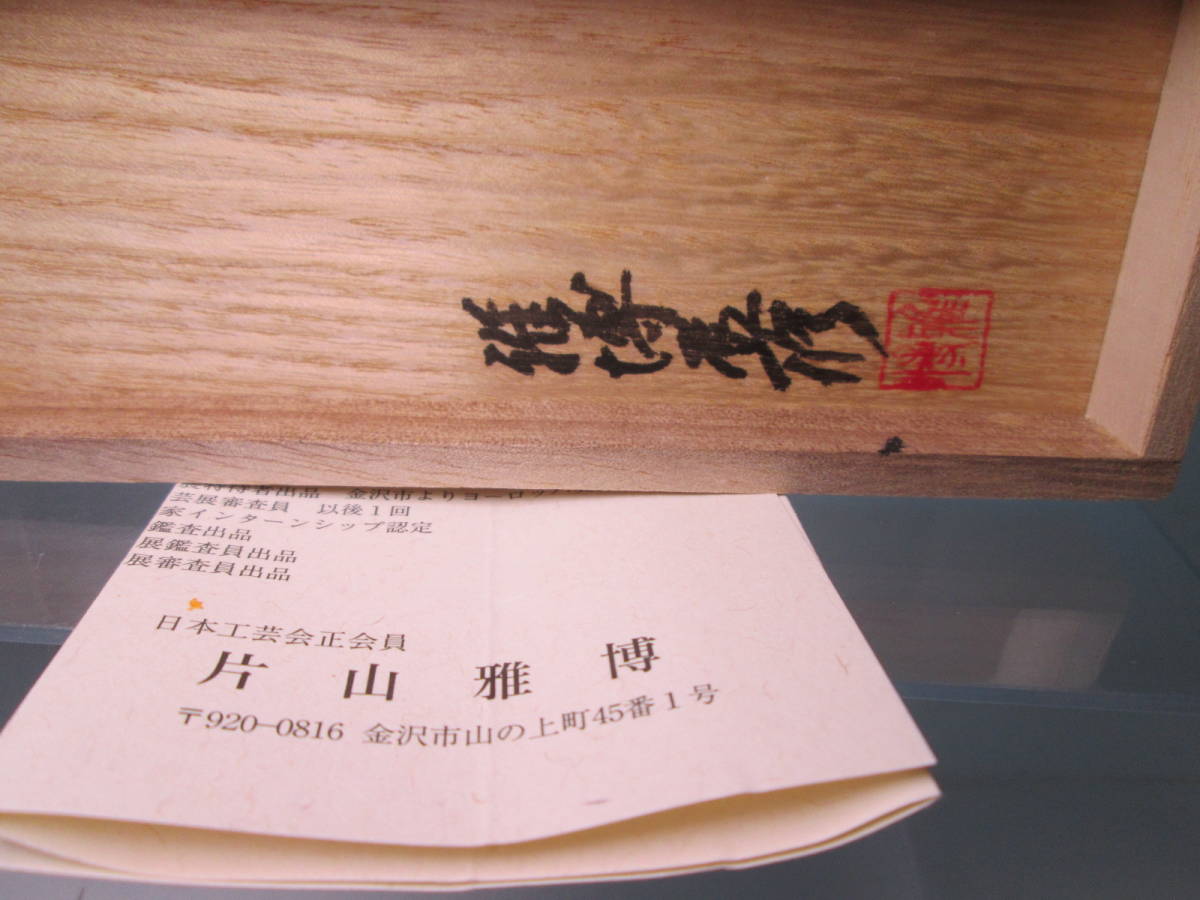 雅博
芸展審査員 以後1回
家インターンシップ認定
鑑査出品
展鑑査員出品
展審査員出品
日本工芸会正会員
片山雅博
〒920-0816 金沢市山の上町45番1号